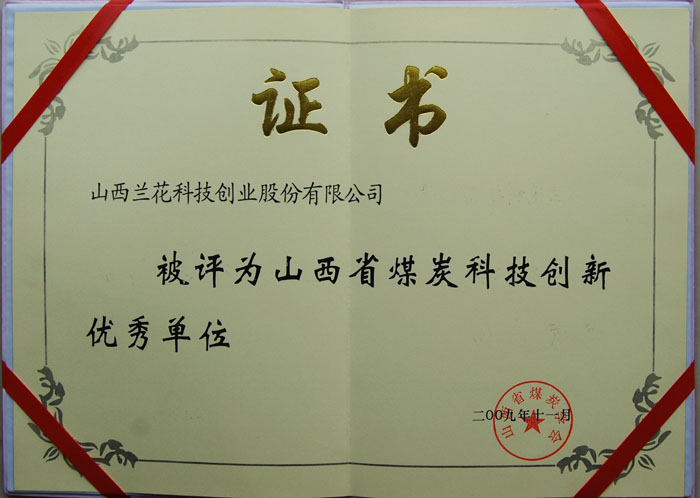 证书
山西兰花科技创业股份有限公司
被评为山西省煤炭科技创新
优秀单位
二00九年十一月
山西省煤炭学会